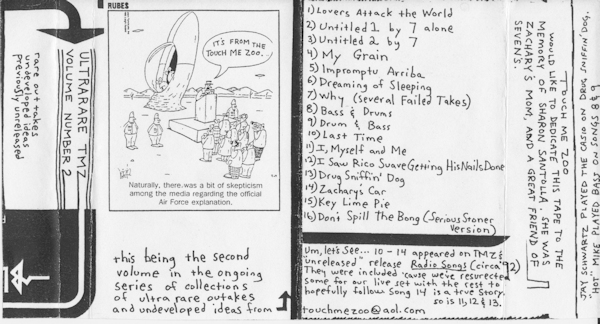 rare outtakes
undeveloped ideas
previously unreleased
ULTRARARE TMZ
VOLUME NUMBER 2
RUBES
IT'S FROM THE
TOUCH ME ZOO...
Naturally, there was a bit of skepticism
among the media regarding the official
Air Force explanation.
this being the second
volume in the ongoing
series of collections
of ultra rare outakes
and undeveloped ideas from
1) Lovers Attack the World
2) Untitled 1 by 7 alone
3) Untitled 2 by 7
4) My Grain
5) Impromptu Arriba
6) Dreaming of Sleeping
7) Why (Several Failed Takes)
8) Bass & Drums
9) Drum & Bass
10) Last Time
11) I, Myself and Me
12) I Saw Rico Suave Getting His Nails Done
13) Drug Sniffin' Dog
14) Zachary's Car
15) Key Lime Pie
16) Don't Spill the Bong (Serious Stoner
Version)
um, let's see... 10-14 appeared on TMZ's
"unreleased" release Radio Songs (circa '92)
They were included 'cause we've resurected
some for our live set with the rest to
hopefully follow. Song 14 is a true story.
so is 11, 12 & 13.
touchmezoo@aol.com
TOUCH ME ZOO
WOULD LIKE TO DEDICATE THIS TAPE TO THE
MEMORY OF SHARON SANTOLLA. SHE WAS
ZACHARY'S MOM, AND A GREAT FRIEND OF
SEVEN'S.
"HOT" MIKE PLAYED BASS ON SONGS 8 & 9
JAY SCHWARTZ PLAYED THE CASIO ON DRUG SNIFFIN' DOG.